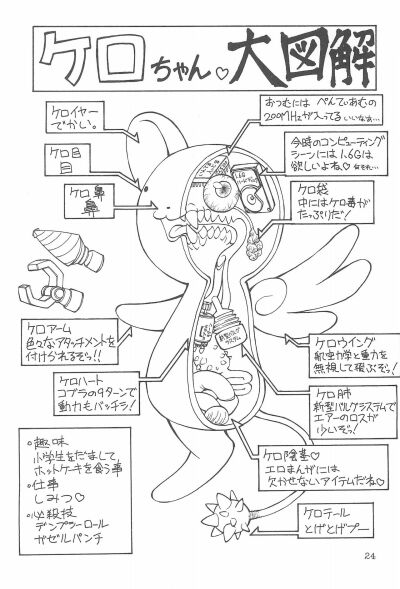 ケロちゃん♡大図解
おつむには ぺんてぃあむの
200MHzが入ってる いいなぁ…
今時のコンピューティング
シーンには1.6Gは
欲しいよね♡
ケロイヤー
でかい。
ケロ目
目
ケロ鼻
鼻
ケロ袋
中にはケロ毒が
たっぷりだ!
ケロアーム
色々なアタッチメントを
付けかれるぞっ!!
ケロウイング
航空力学と重力を
無視して飛ぶぞっ!
ケロハート
コブラの9ターンで
動力もバッチラ!
ケロ肺
新型バルグラステムで
エアーのロスが
少いぞっ!
ケロ陰茎♡
エロまんがには
欠かせないアイテムだね♡
・趣味
小学生をだまして
ホットケーキを食う事
・仕事
しみつ♡
・必殺技
デンプシーロール
ガゼルパンチ
ケロテール
とげとげプー
24